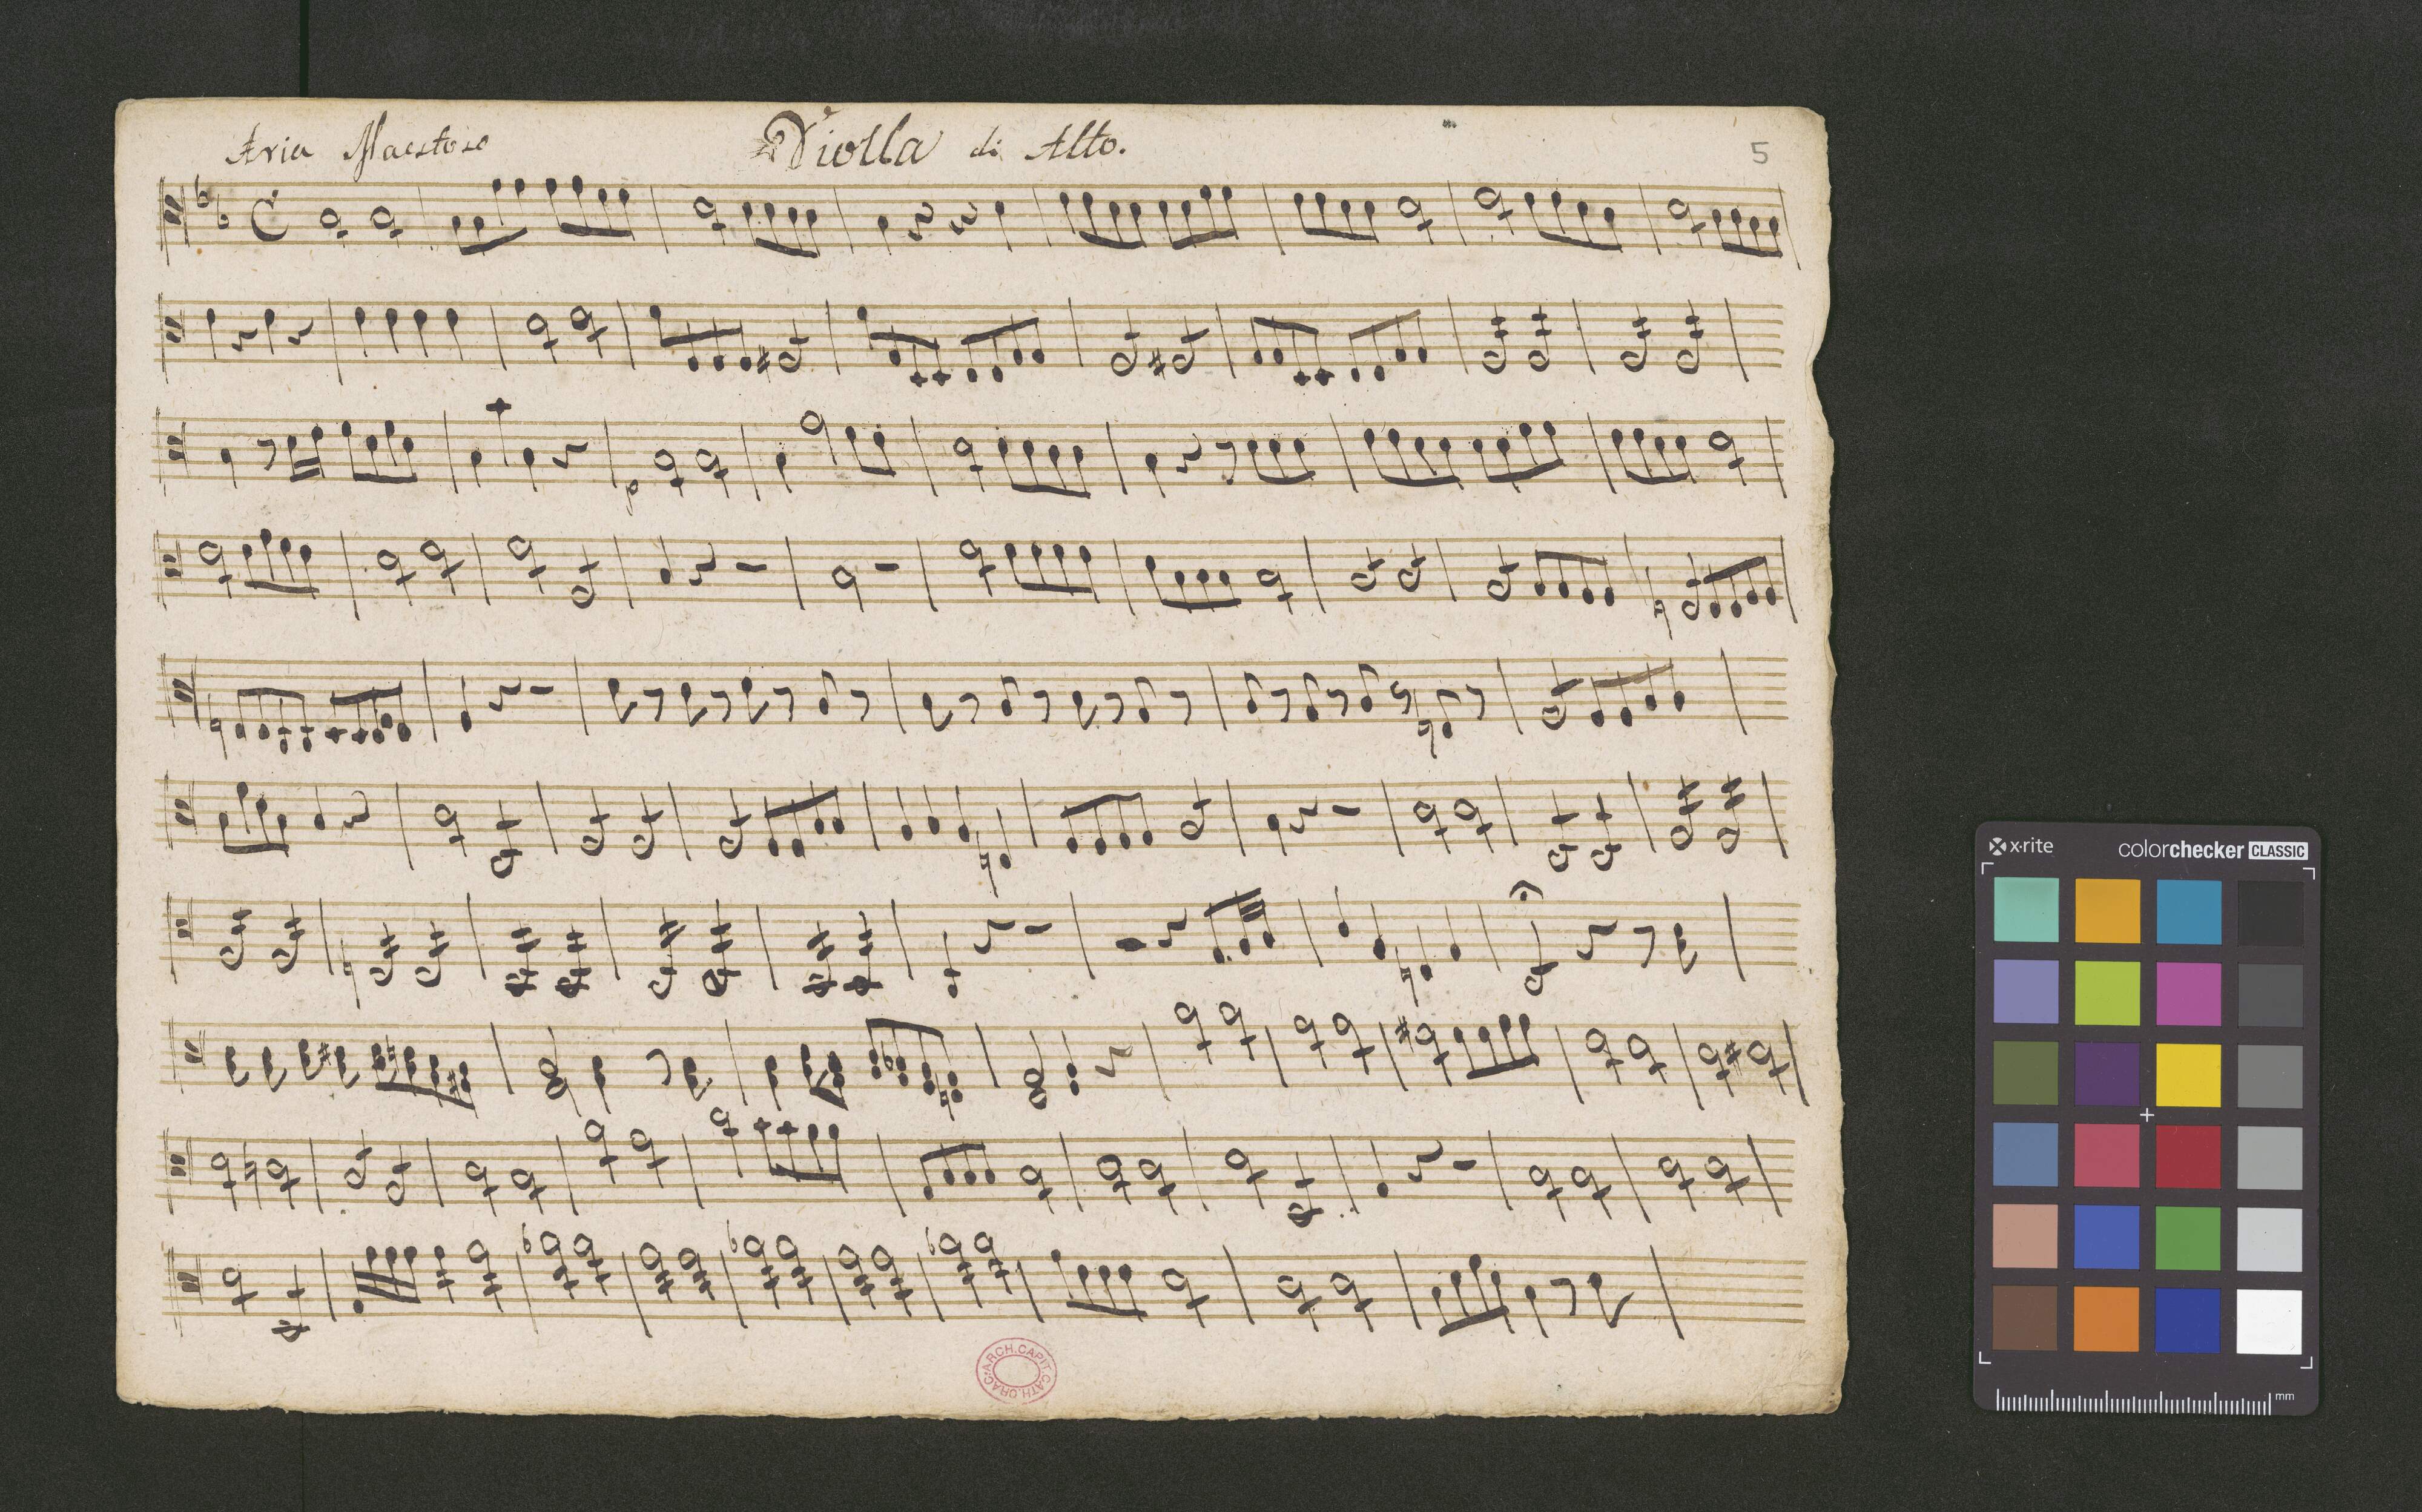 Aria Maestoso
Violla di Alto.
5
p
ARCH.CAPIT.CATH.CRAC.
x-rite
colorchecker CLASSIC
mm